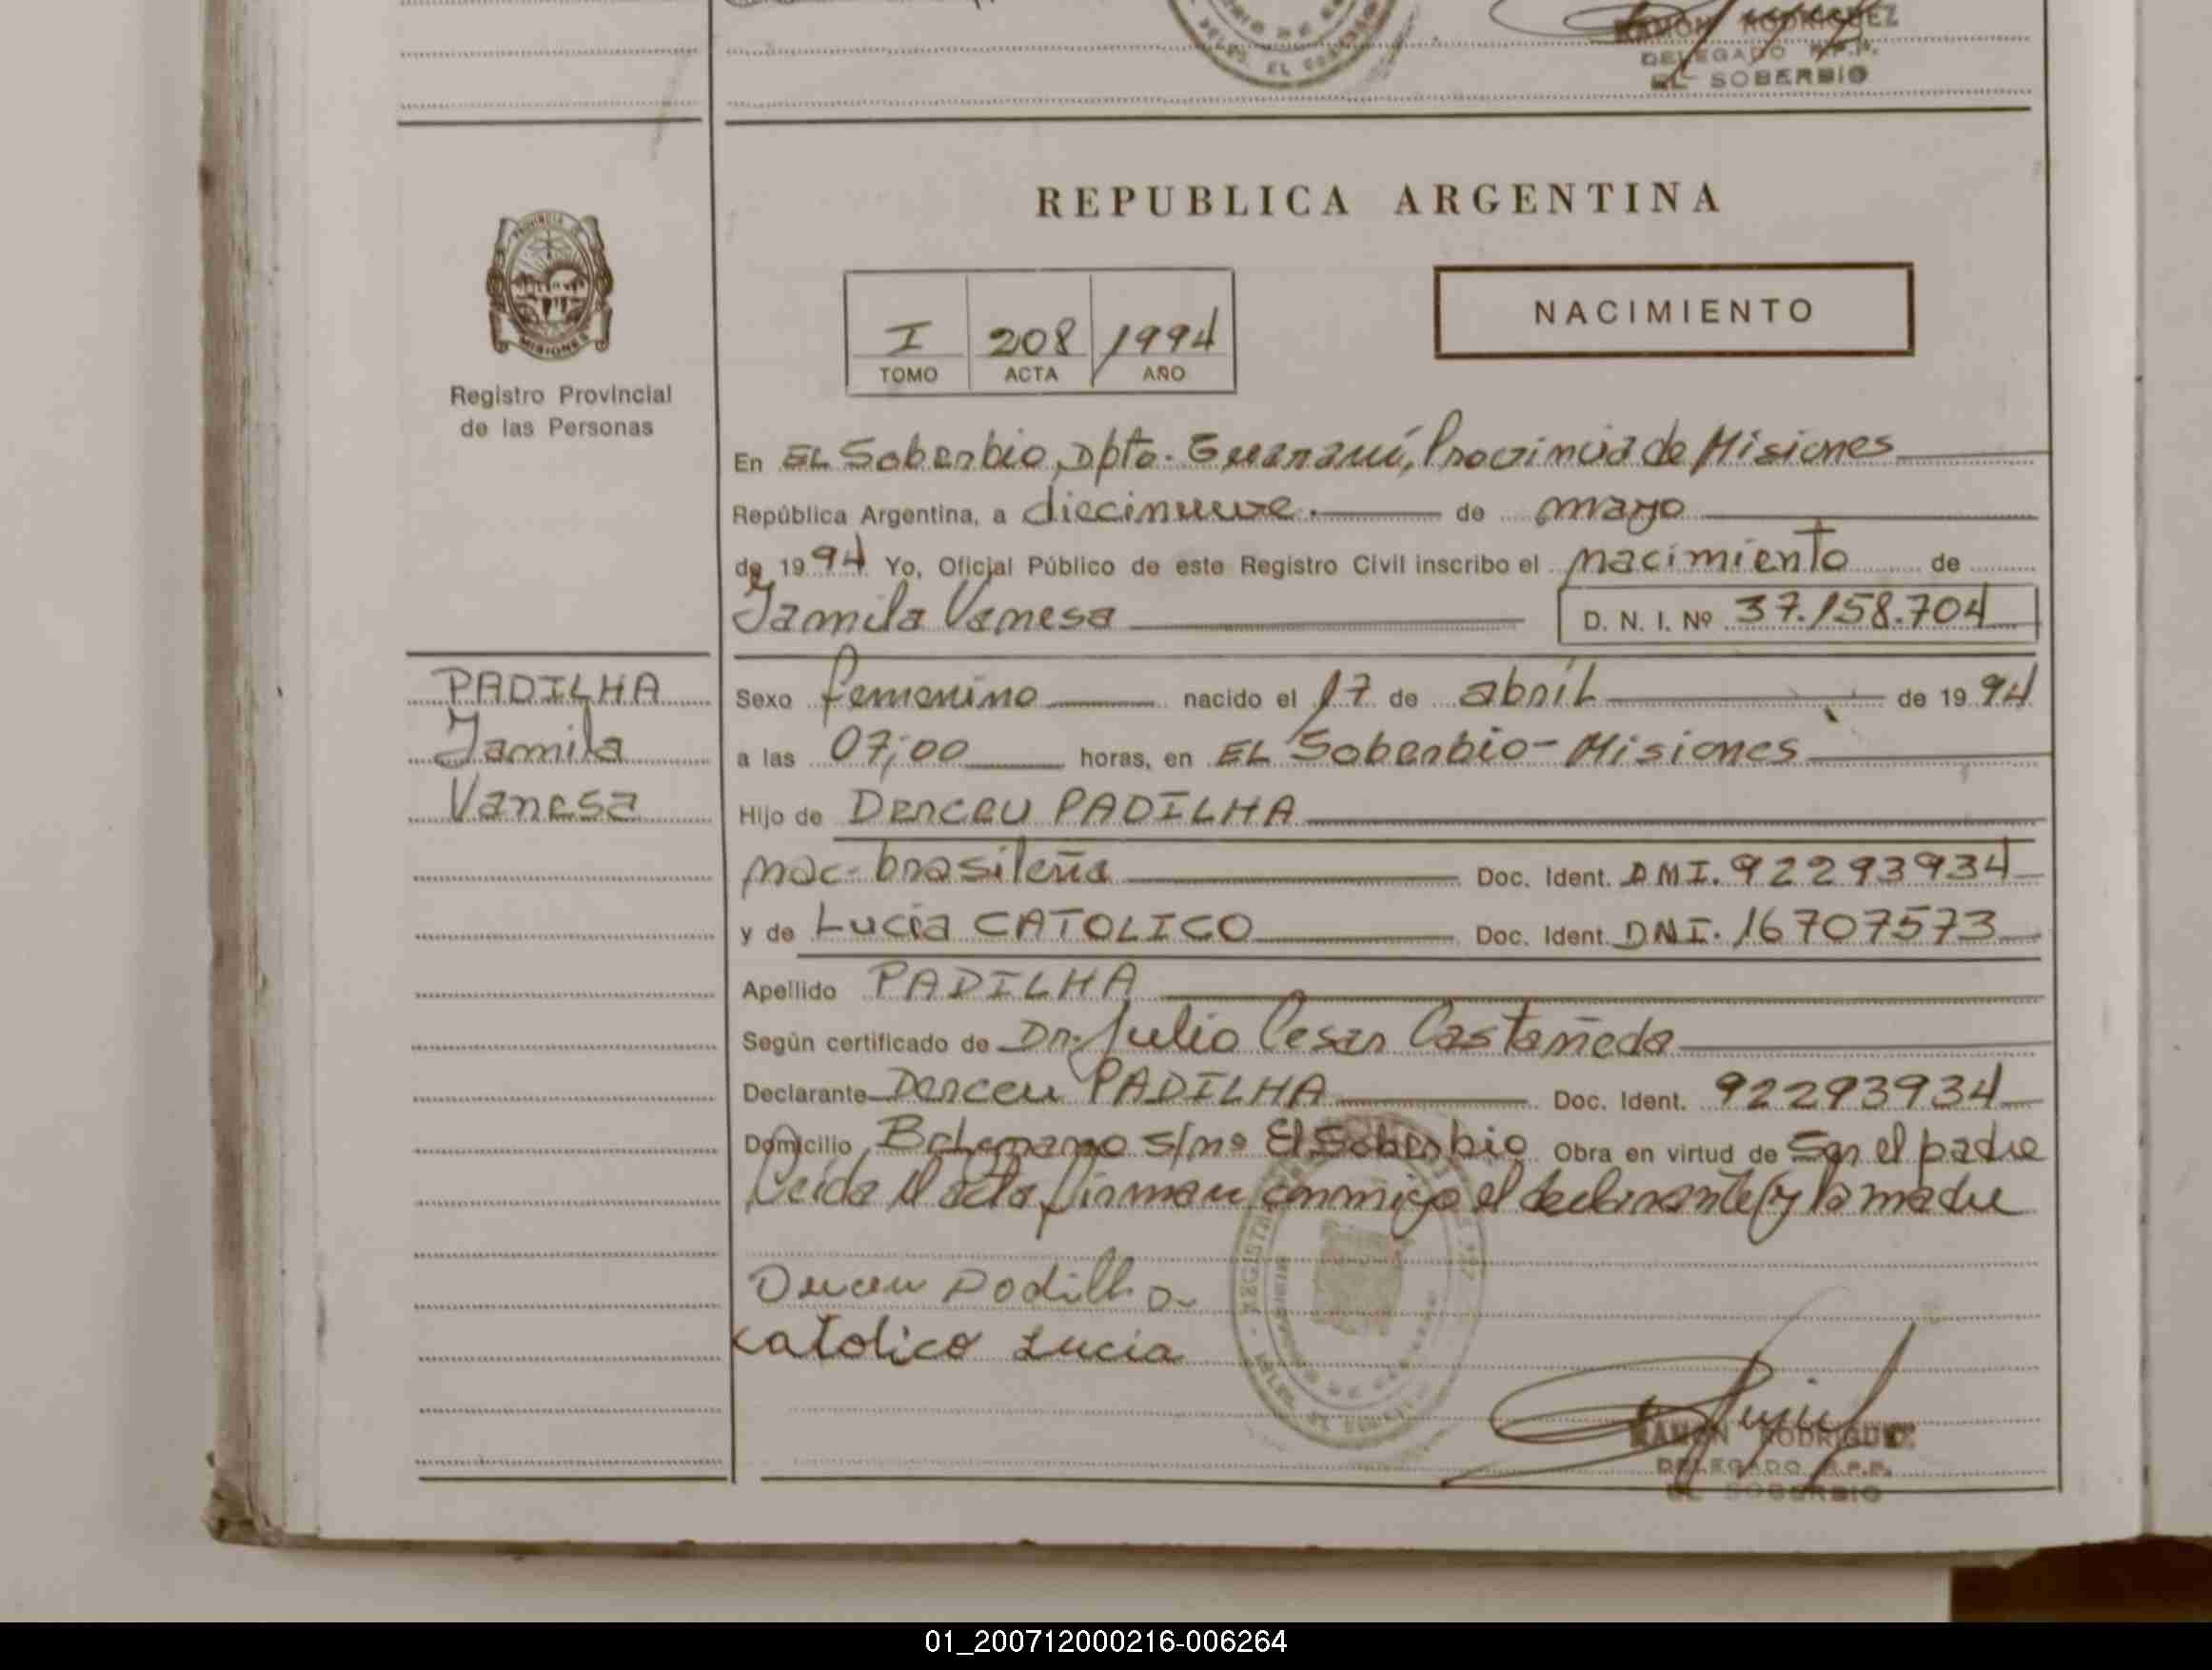 RAMON RODRIGUEZ
DELEGADO R.P.P.
EL SOBERBIO
REPUBLICA ARGENTINA
PROVINCIA DE
MISIONES
Registro Provincial
de las Personas
I 208 1994
TOMO ACTA AÑO
NACIMIENTO
En EL Soberbio, Dpto. Guaraní, Provincia de Misiones
República Argentina, a diecinueve. de mayo
de 1994 Yo, Oficial Público de este Registro Civil inscribo el nacimiento de
Jamila Vanesa D. N. I. Nº 37.158.704
PADILHA
Jamila
Vanesa
Sexo femenino nacido el 17 de abril de 1994
a las 07;00 horas, en EL Soberbio-Misiones
Hijo de Derceu PADILHA
nac- brasileña Doc. Ident. DNI. 92293934
y de Lucia CATOLICO Doc. Ident. DNI. 16707573
Apellido PADILHA
Según certificado de Dr. Julio Cesar Castañeda
Declarante Derceu PADILHA Doc. Ident. 92293934
Domicilio s/nº El Soberbio Obra en virtud de Ser el padre
Leída el acta firman conmigo el declarante y la madre
Derceu Padilha
Catolico Lucia
RAMON RODRIGUEZ
DELEGADO R.P.P.
EL SOBERBIO
01_200712000216-006264